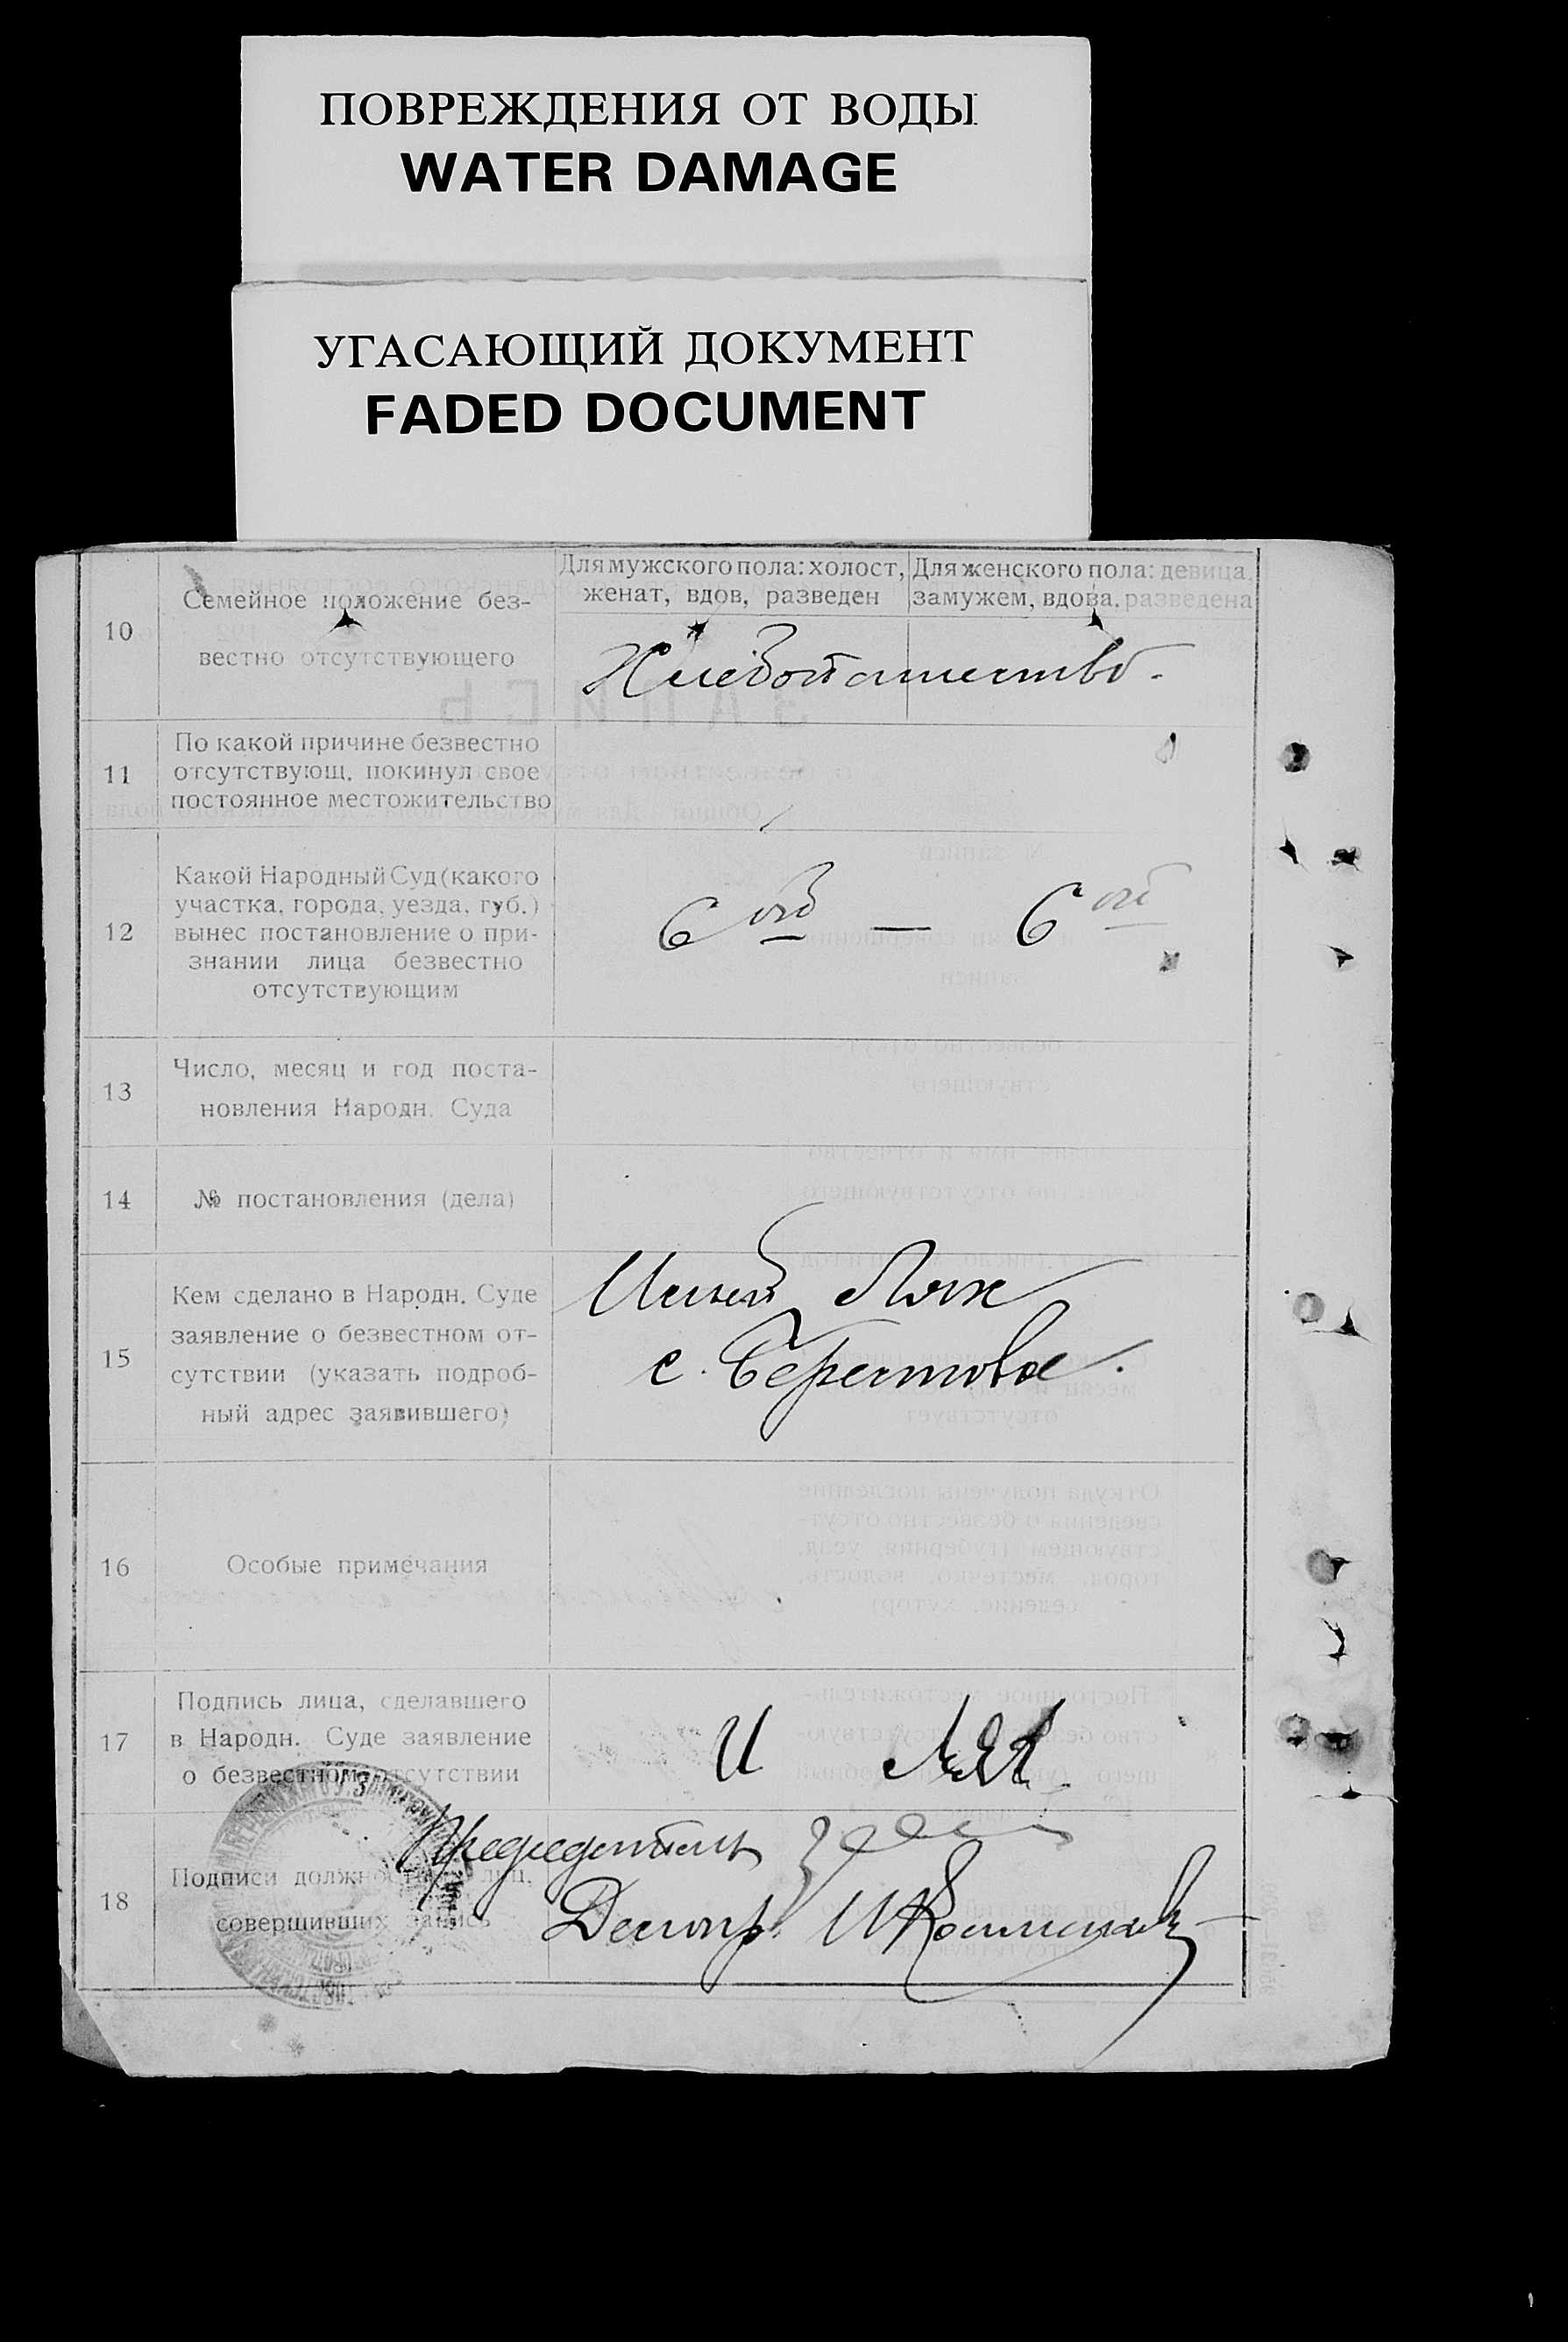 ПОВРЕЖДЕНИЯ ОТ ВОДЫ
WATER DAMAGE
УГАСАЮЩИЙ ДОКУМЕНТ
FADED DOCUMENT
10
Семейное положение без-
вестно отсутствующего
Для мужского пола: холост,
женат, вдов, разведен
Для женского пола: девица,
замужем, вдова, разведена
Хлебопашество.
11
По какой причине безвестно
отсутствующ. покинул свое
постоянное местожительство
12
Какой Народный Суд (какого
участка, города, уезда, губ.)
вынес постановление о при-
знании лица безвестно
отсутствующим
6 — 6
13
Число, месяц и год поста-
новления Народн. Суда
14
№ постановления (дела)
15
Кем сделано в Народн. Суде
заявление о безвестном от-
сутствии (указать подроб-
ный адрес заявившего)
Лях
с. Берестовое.
16
Особые примечания
17
Подпись лица, сделавшего
в Народн. Суде заявление
о безвестном отсутствии
И Лях
18
Подписи должностных лиц,
совершивших запись
Председатель
Делопр.